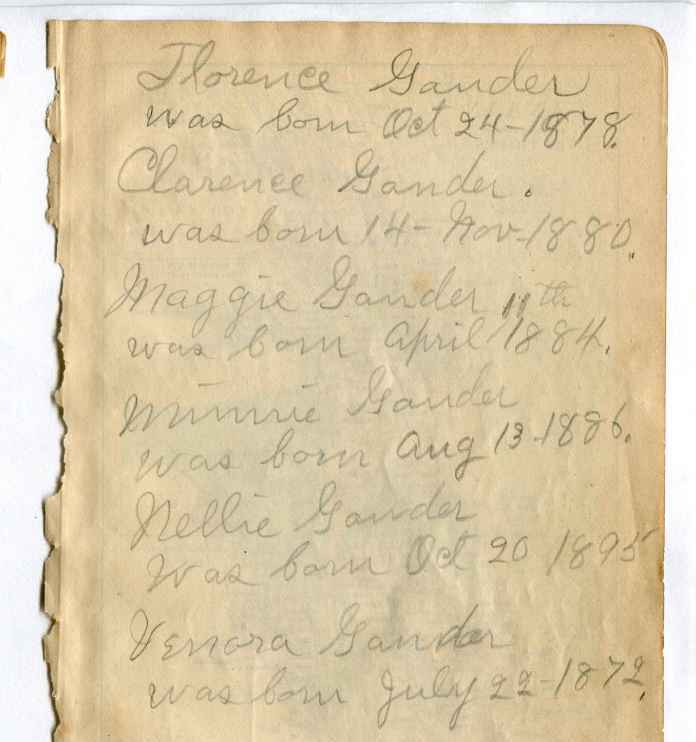 Florence Gander
was born Oct 24-1878.
Clarence Gander.
was born 14-Nov-1880.
Maggie Gander 11th
was born April 1884.
Minnie Gander
was born Aug 13-1886.
Nellie Gander
Was born Oct 20 1895
Venora Gander
was born July 22-1872.